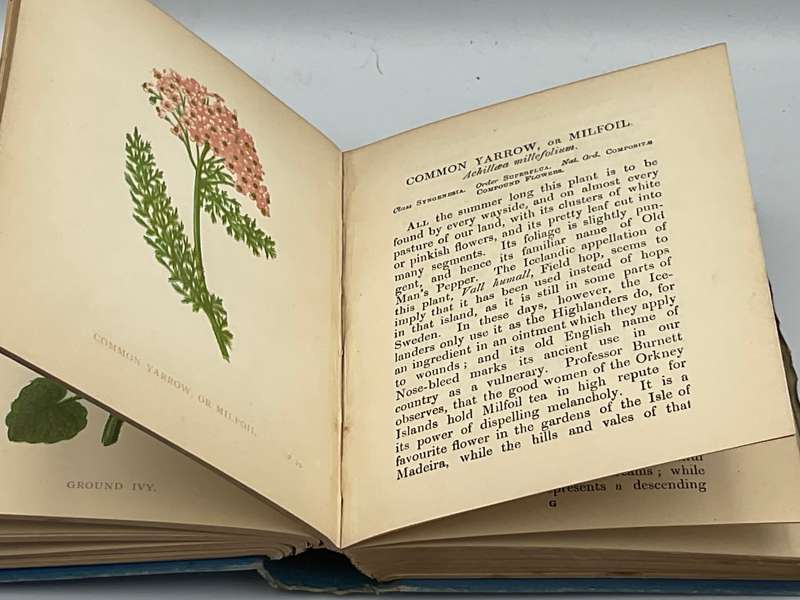 COMMON YARROW, OR MILFOIL.
GROUND IVY.
COMMON YARROW, OR MILFOIL.
Achillæa millefolium.
Class SYNGENESIA. Order SUPERFLUA. Nat. Ord. COMPOSITÆ
COMPOUND FLOWERS.
ALL the summer long this plant is to be
found by every wayside, and on almost every
pasture of our land, with its clusters of white
or pinkish flowers, and its pretty leaf cut into
many segments. Its foliage is slightly pun-
gent, and hence its familiar name of Old
Man's Pepper. The Icelandic appellation of
this plant, Vall humall, Field hop, seems to
imply that it has been used instead of hops
in that island, as it is still in some parts of
Sweden. In these days, however, the Ice-
landers only use it as the Highlanders do, for
an ingredient in an ointment which they apply
to wounds; and its old English name of
Nose-bleed marks its ancient use in our
country as a vulnerary. Professor Burnett
observes, that the good women of the Orkney
Islands hold Milfoil tea in high repute for
its power of dispelling melancholy. It is a
favourite flower in the gardens of the Isle of
Madeira, while the hills and vales of that
; while
a descending
G